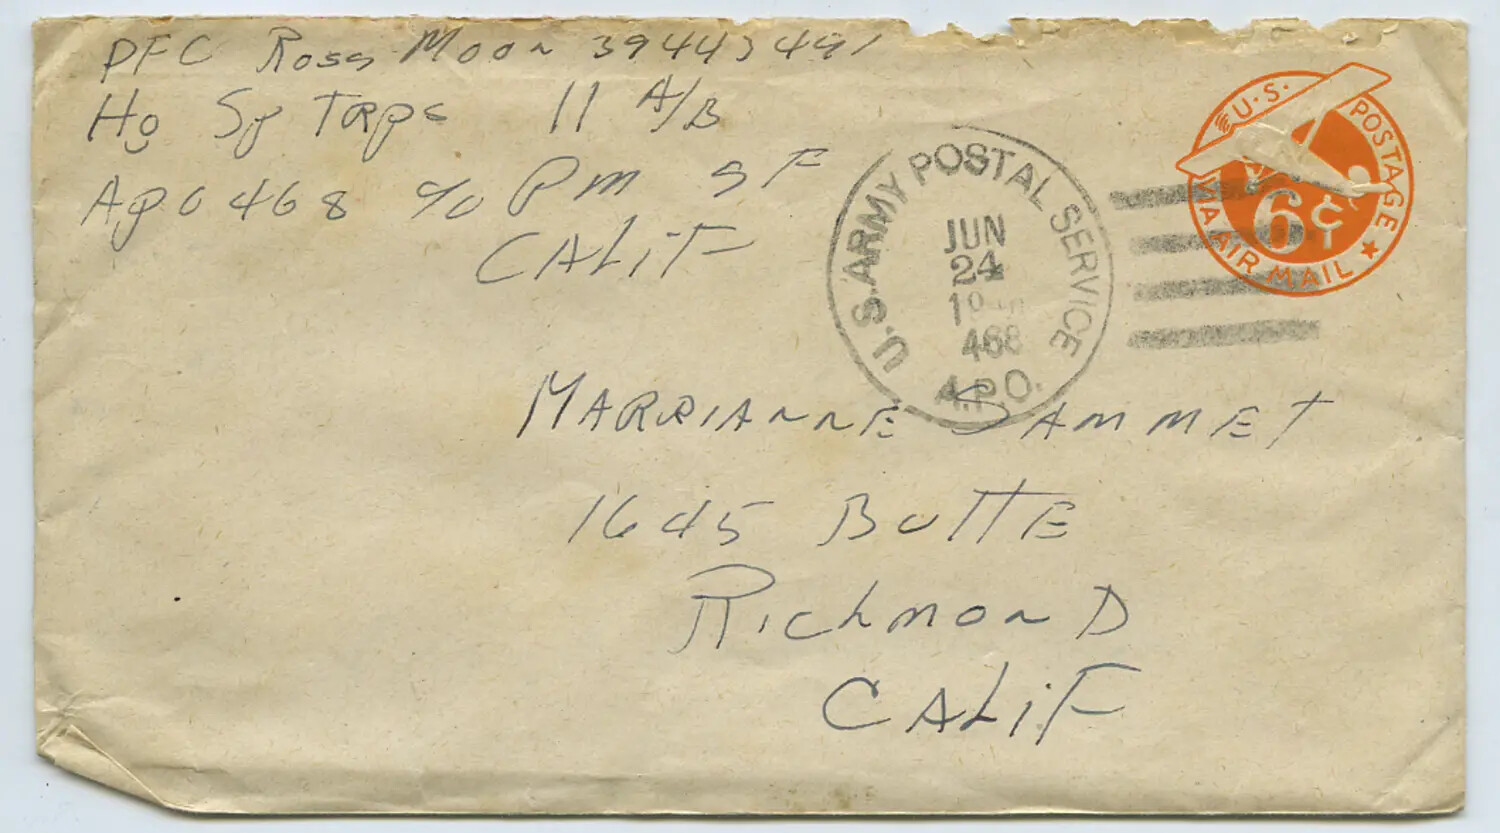 PFC Ross Moon 39443491
Hq Sp Trps 11 A/B
APO 468 c/o PM SF
CALIF
U.S. ARMY POSTAL SERVICE
JUN
24
468
A.P.O.
U.S. POSTAGE
6¢
VIA AIR MAIL
MARRIANNE SAMMET
1645 BUTTE
RICHMOND
CALIF